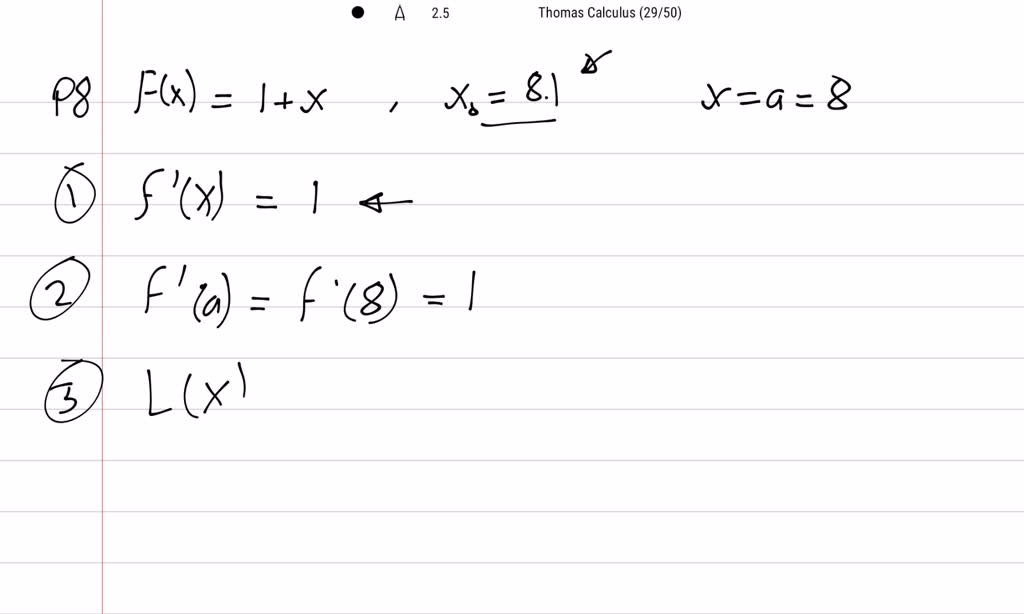 A 2.5 Thomas Calculus (29/50)
P8 F(x) = 1 + x , x₀ = 8.1 x = a = 8
① f'(x) = 1 ←
② f'(a) = f'(8) = 1
③ L(x)